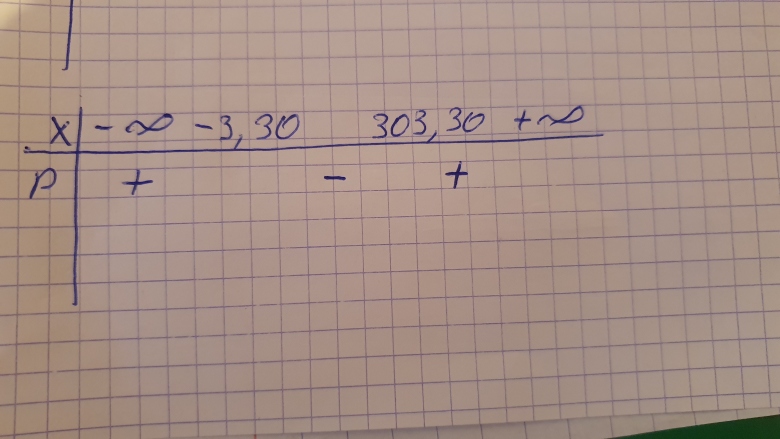 X - ∞ -3,30 303,30 +∞
P + - +